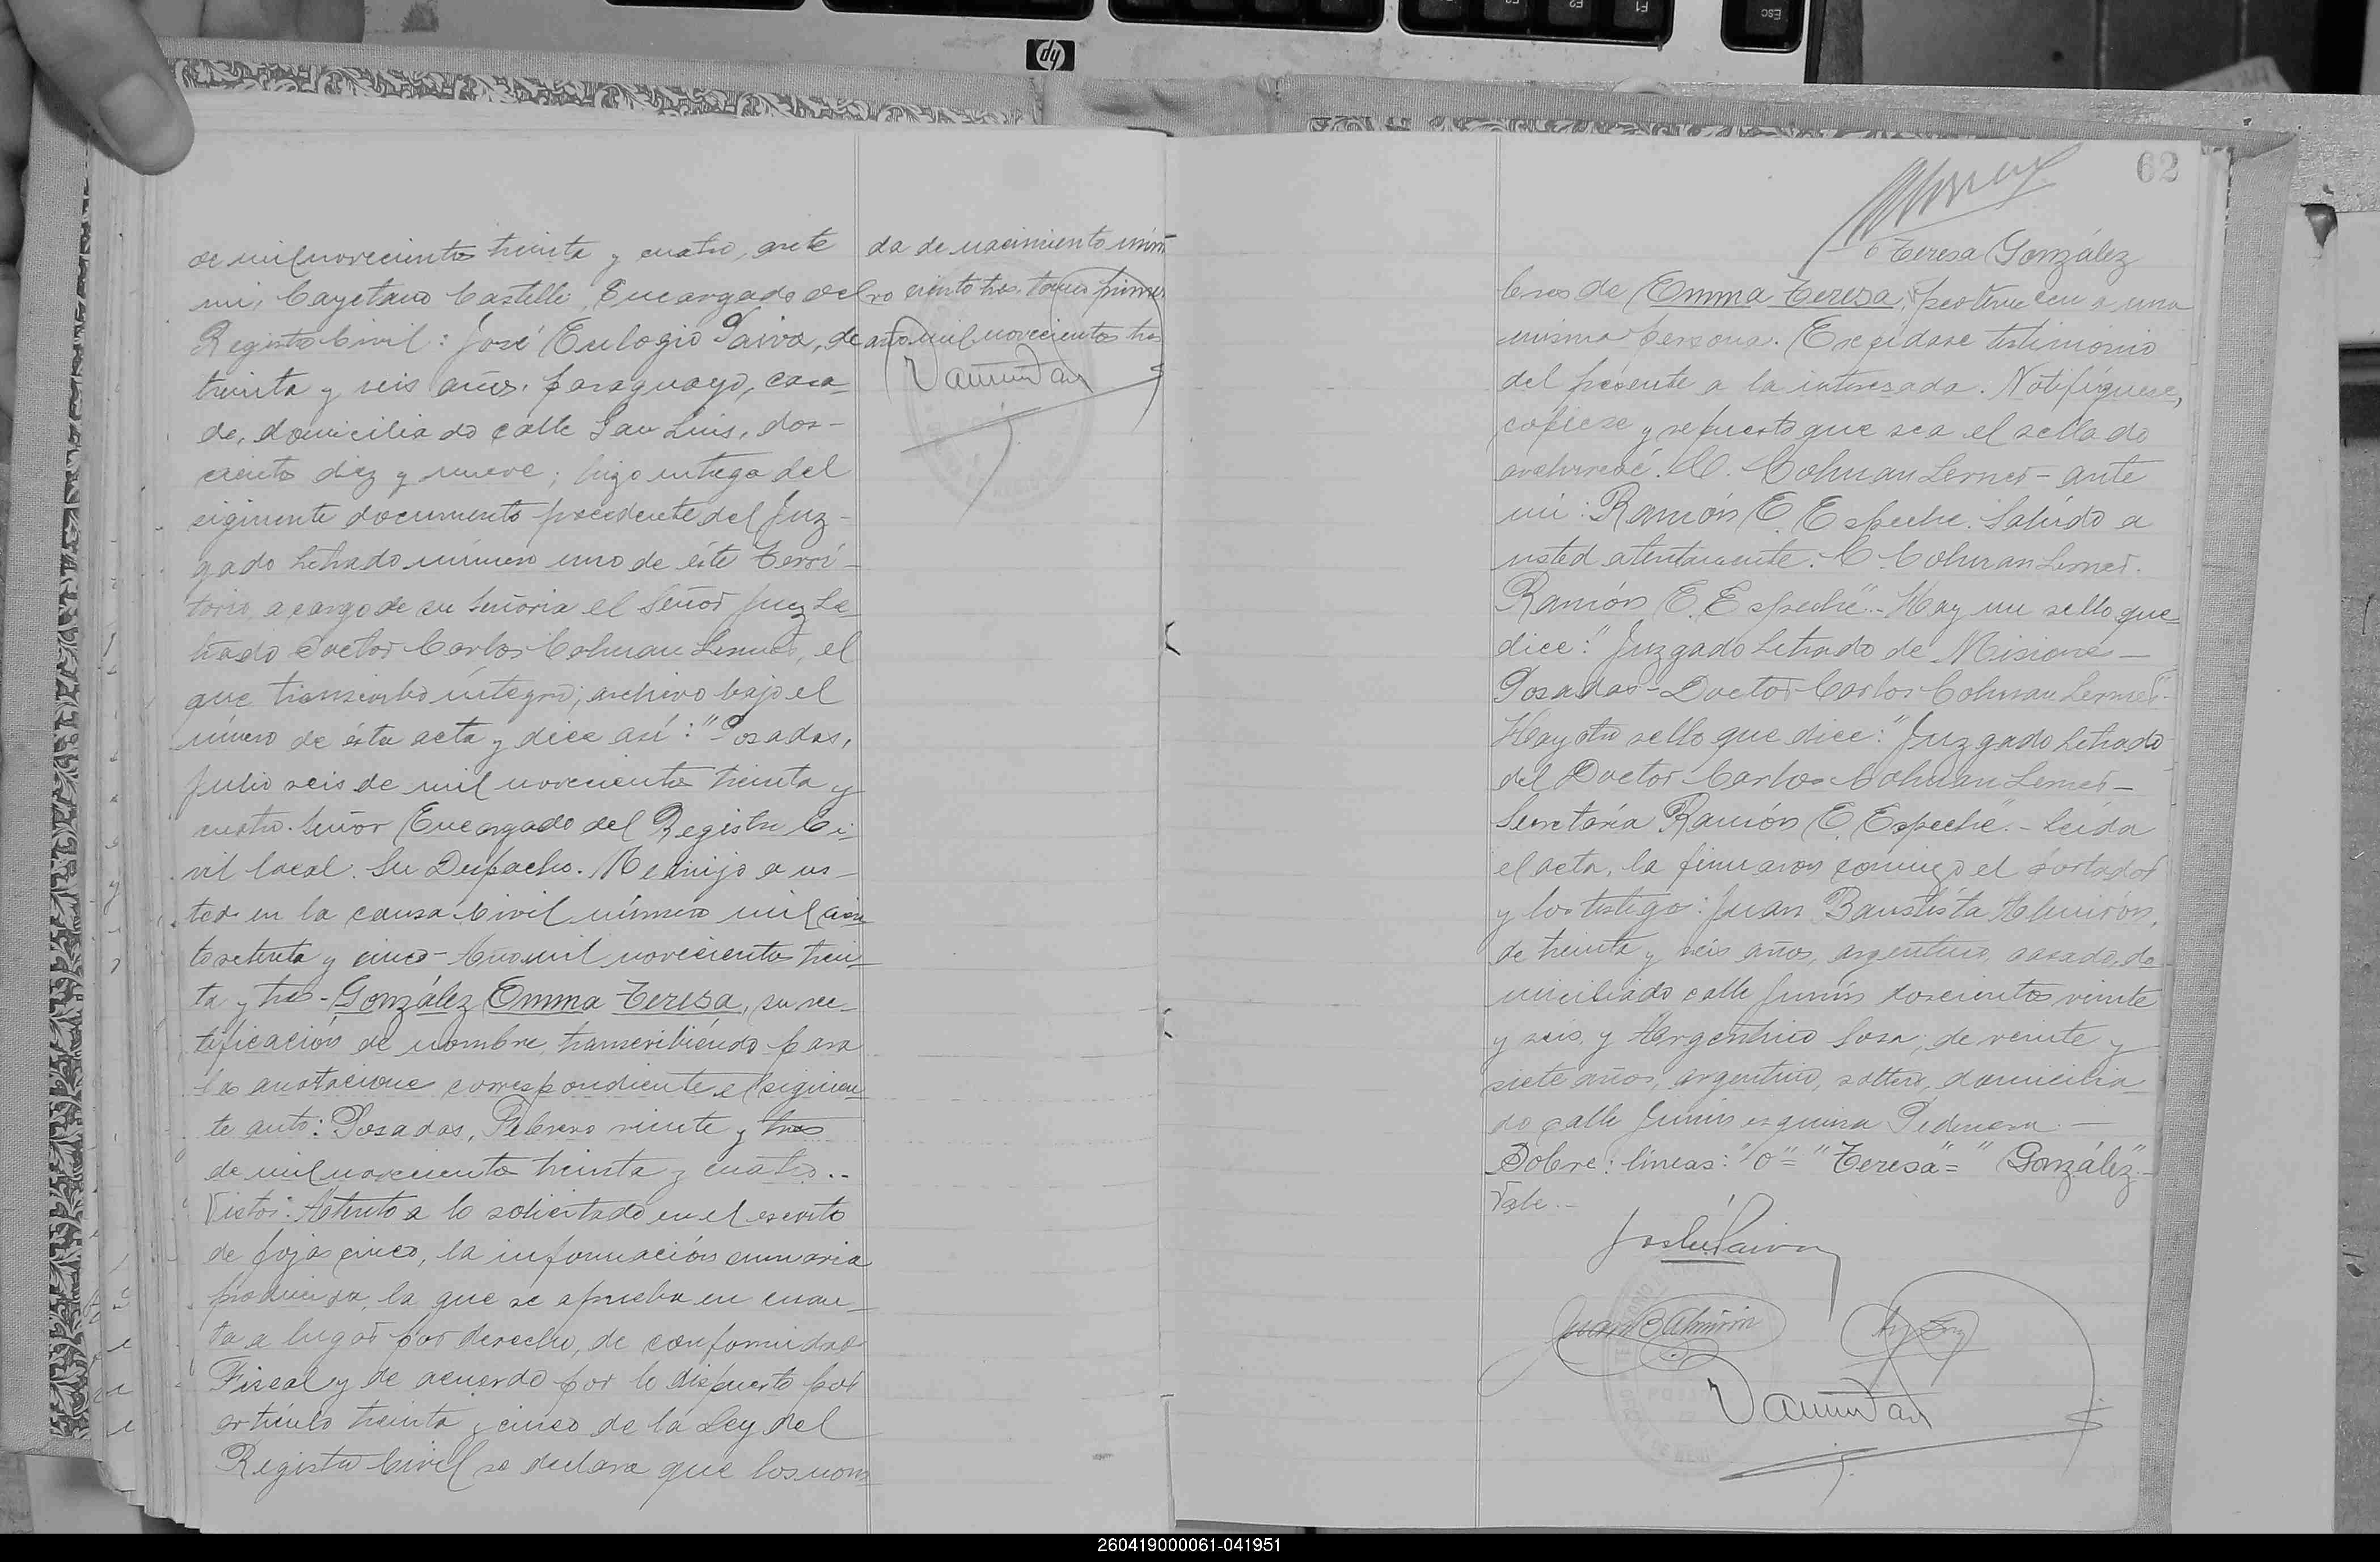 de mil novecientos treinta y cuatro, ante
mi, Cayetano Castelli, Encargado del
Registro Civil: José Eulogio Paiva, de
treinta y seis años, paraguayo, casa-
do, domiciliado calle San Luis, dos-
cientos diez y nueve; hizo entrega del
siguiente documento procedente del Juz-
gado Letrado número uno de éste Terri-
torio, a cargo de su Señoria el Señor Juez Le-
trado Doctor Carlos Colman Lerner, el
que transcribo íntegro, archivo bajo el
número de ésta acta y dice así: "Posadas,
Julio seis de mil novecientos treinta y
cuatro. Señor Encargado del Registro Ci-
vil local. Su Despacho. Me dirijo a us-
ted en la causa Civil número mil cien-
to setenta y cinco - Año mil novecientos trein-
ta y tres - González Emma Teresa, su rec-
tificación de nombre, transcribiéndo para
las anotaciones correspondiente el siguien-
te auto: Posadas, Febrero veinte y tres
de mil novecientos treinta y cuatro.-
Vistos: Atento a lo solicitado en el escrito
de fojas cinco, la información sumaria
producida, la que se aprueba en cuan-
to a lugar por derecho, de conformidad
Fiscal y de acuerdo por lo dispuesto por
artículo treinta y cinco de la Ley del
Registro Civil se declara que los nom-
da de nacimiento núme-
ro ciento tres, tomo primero
año mil novecientos tres
62
o Teresa González
bres de Emma Teresa, pertenecen a una
misma persona. Expídase testimonio
del presente a la interesada. Notifíquese,
cópiese y repuesto que sea el sellado
archívese. C. Colman Lerner - ante
mi: Ramón E. Espeche. Saludo a
usted atentamente. C. Colman Lerner.
Ramón E. Espeche".- Hay un sello que
dice: "Juzgado Letrado de Misiones -
Posadas - Doctor Carlos Colman Lerner"-
Hay otro sello que dice: "Juzgado Letrado
del Doctor Carlos Colman Lerner -
Secretaría Ramón E. Espeche".- Leída
el acta, la firmaron conmigo el portador
y los testigos: Juan Bautista Almirón,
de treinta y seis años, argentino, casado, do-
miciliado calle Junín doscientos veinte
y seis, y Argentino Sosa, de veinte y
siete años, argentino, soltero, domicilia-
do calle Junín esquina Pedernera.-
Sobre: líneas: "o" = "Teresa" = "González".-
Vale.-
José Eu Paiva
Juan B Almirón
260419000061-041951